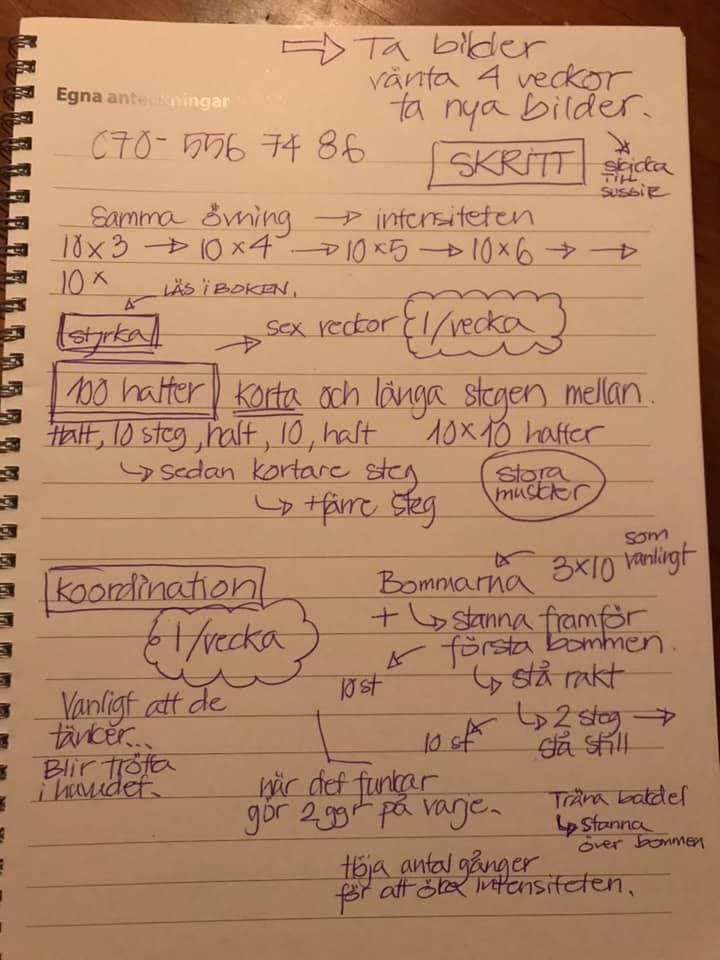 ⇒ Ta bilder
vänta 4 veckor
ta nya bilder.
Egna anteckningar
070-556 74 86
SKRITT
skicka
TILL
SUSSIE
Samma övning → intensiteten
10x3 → 10x4 → 10x5 → 10x6 → →
10x
LÄS i BOKEN.
styrka
→ sex veckor 1/vecka
100 halter korta och långa stegen mellan.
Halt, 10 steg, halt, 10, halt 10x10 halter
↳ sedan kortare steg
↳ + färre steg
stora
muskler
koordination
1/vecka
Bommarna 3x10 som
vanligt
+ ↳ stanna framför
första bommen.
10 st
↳ stå rakt
↳ 2 steg →
stå still
10 st
Vanligt att de
tänker...
Blir trötta
i huvudet.
när det funkar
gör 2 ggr på varje.
Träna bakdel
↳ stanna
över bommen
Höja antal gånger
för att öka intensiteten.